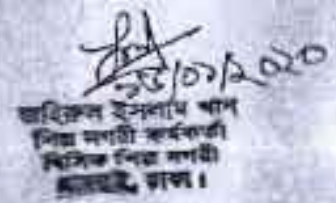 ২৬/০১/২০২০
জহিরুল ইসলাম খান
শিল্প নগরী কর্মকর্তা
বিসিক শিল্প নগরী
ধামরাই, ঢাকা।